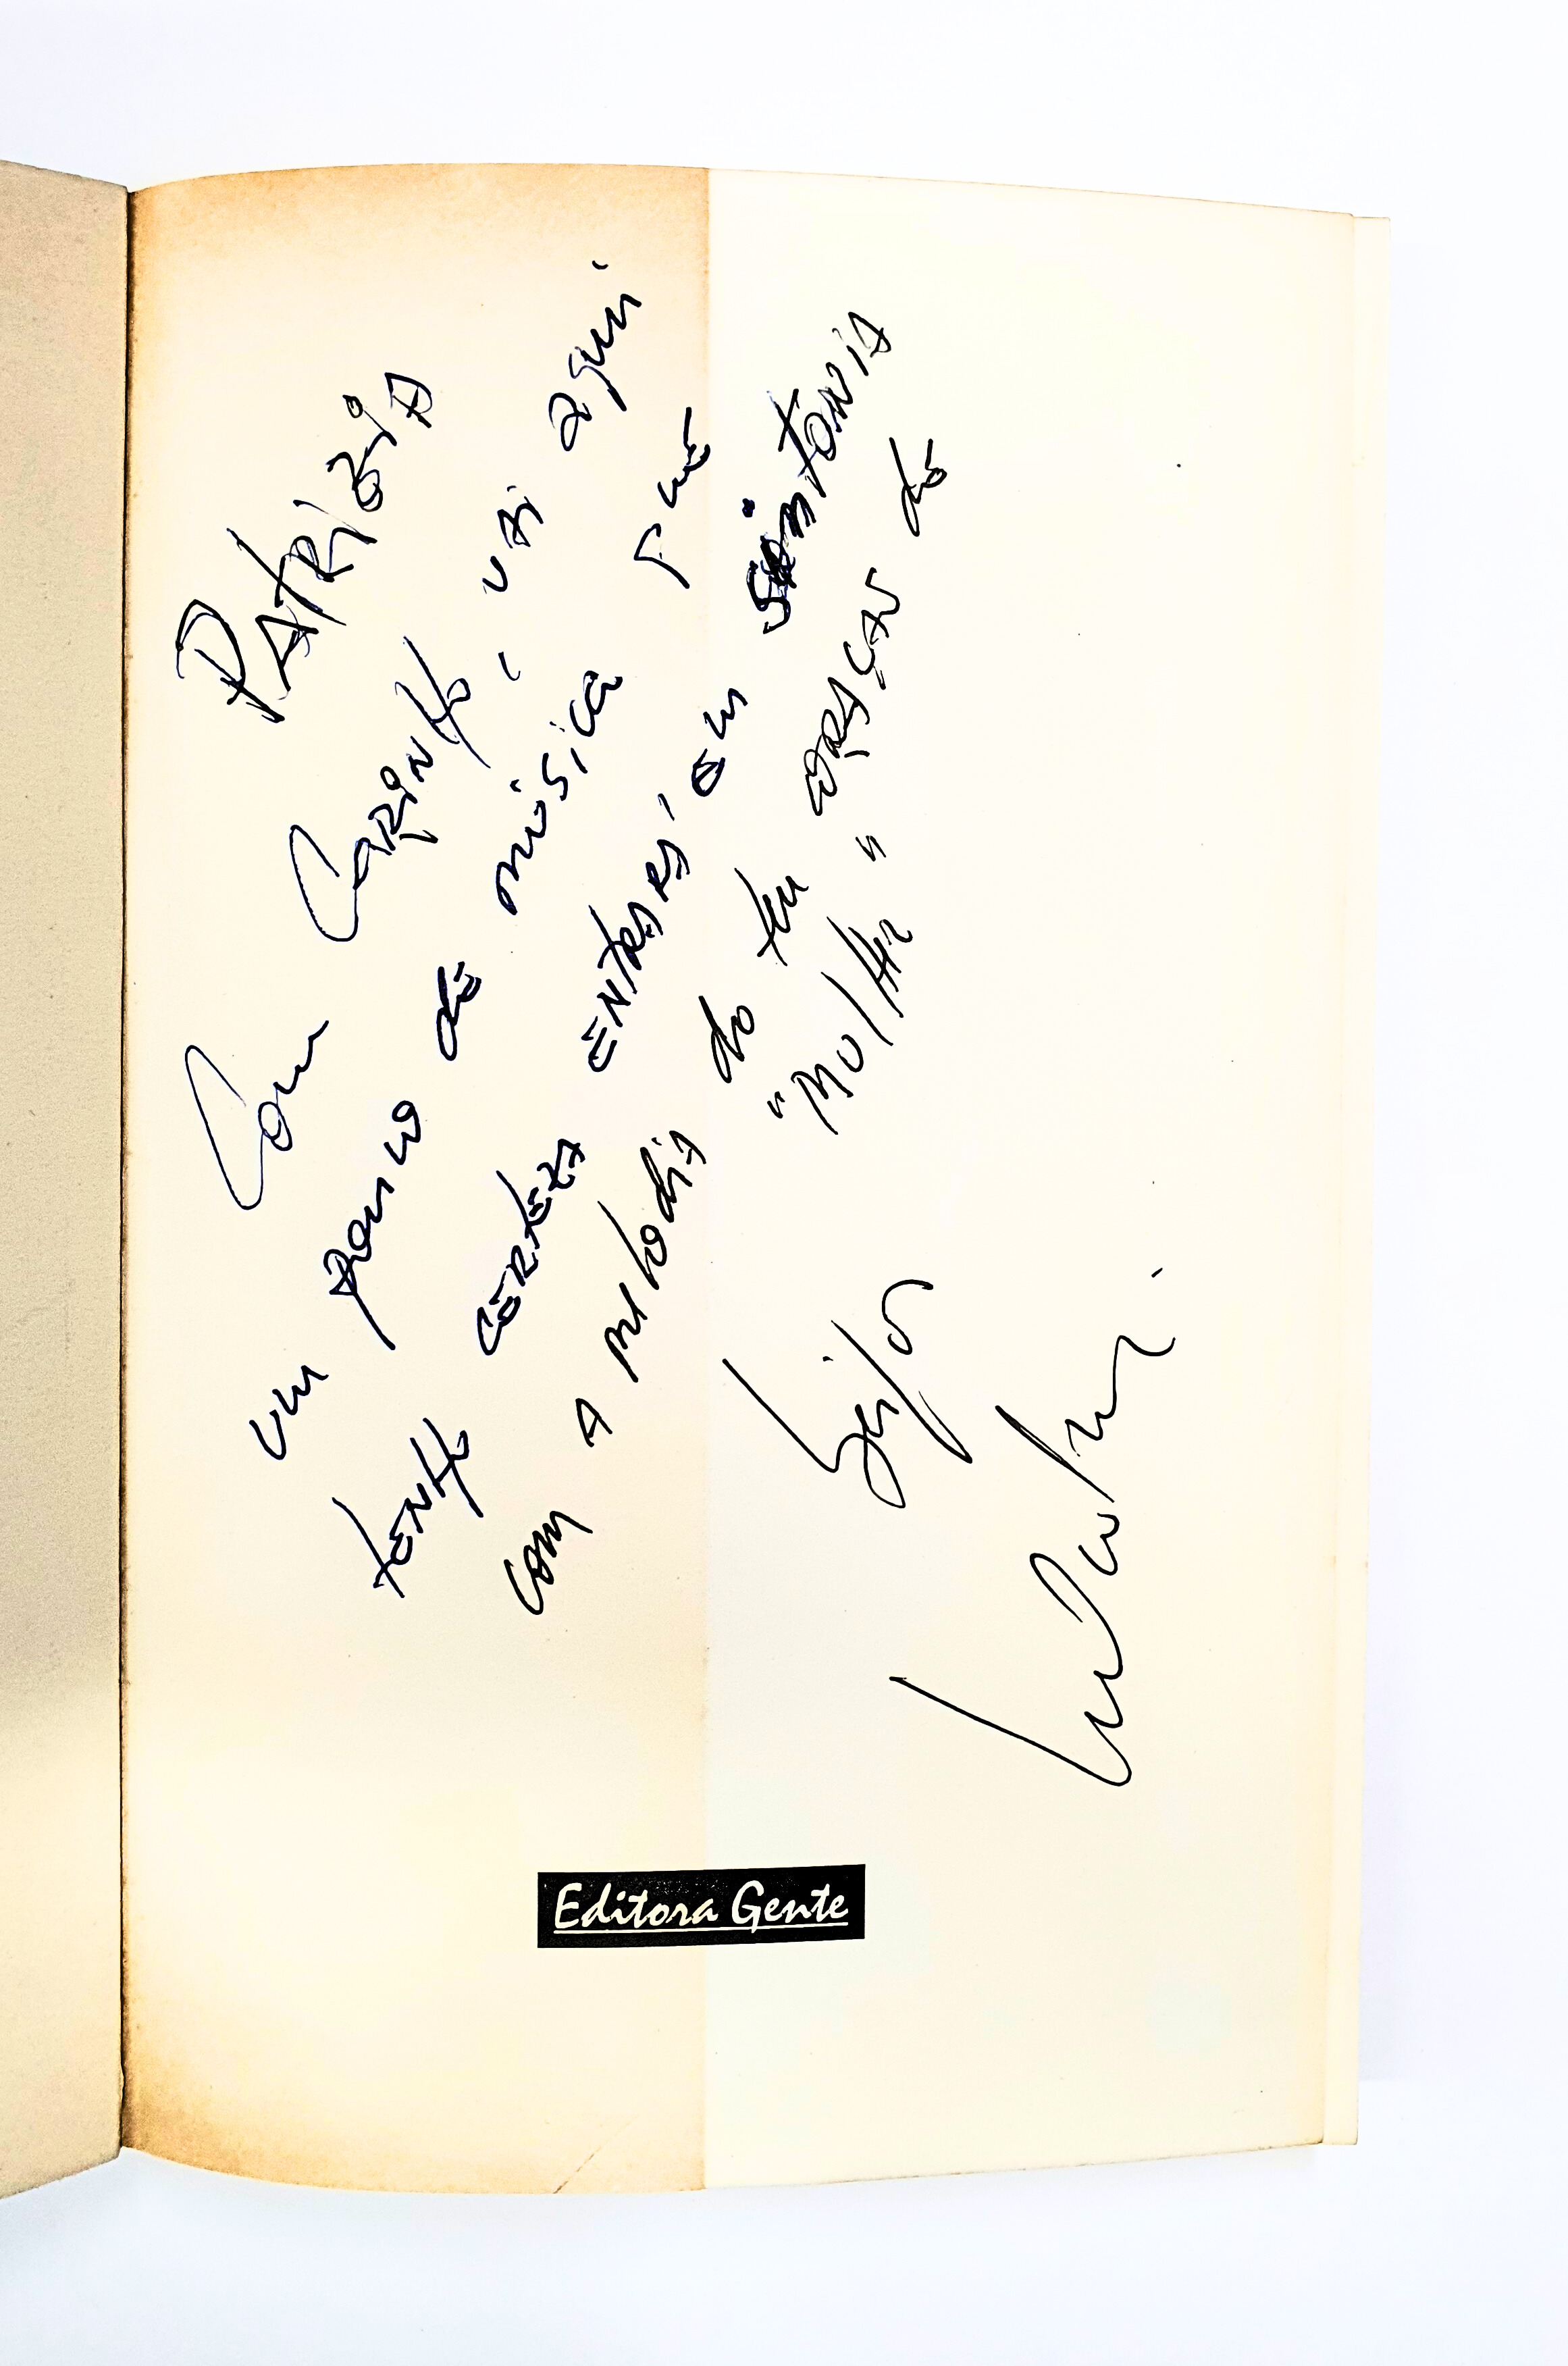 PATRÍZIA
Com CARINHO, VAI aqui
um pouco de música que
tENHO CERtEZA ENtRARÁ em SiNtONIA
com A melodia do teu CORAÇÃO de
"MULHER"
Editora Gente